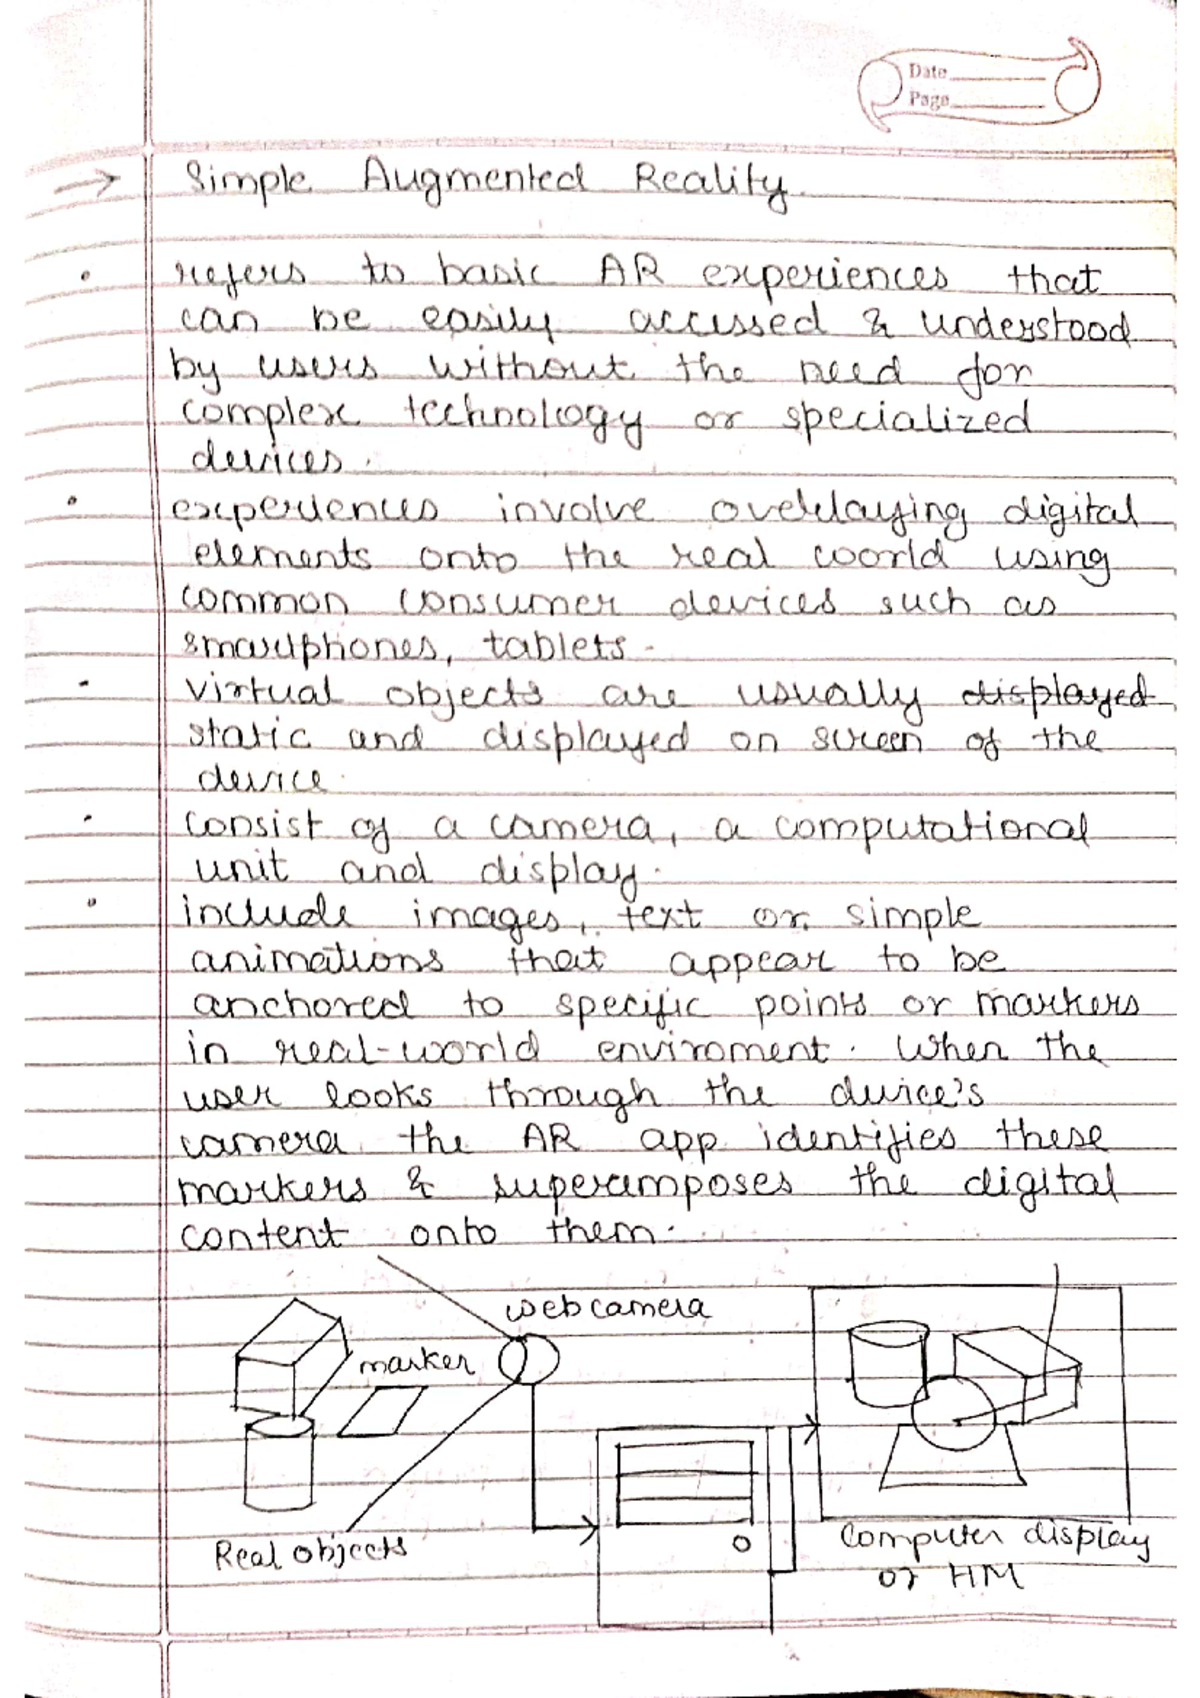 Date
Page
→ Simple Augmented Reality
• refers to basic AR experiences that
can be easily accessed & understood
by users without the need for
complex technology or specialized
devices.
• experiences involve overlaying digital
elements onto the real world using
common consumer devices such as
smartphones, tablets.
• virtual objects are usually displayed
static and displayed on screen of the
device.
• consist of a camera, a computational
unit and display.
• include images, text or simple
animations that appear to be
anchored to specific points or markers
in real-world enviroment. When the
user looks through the device's
camera the AR app identifies these
markers & superimposes the digital
content onto them.
web camera
marker
Real objects
Computer display
or HM